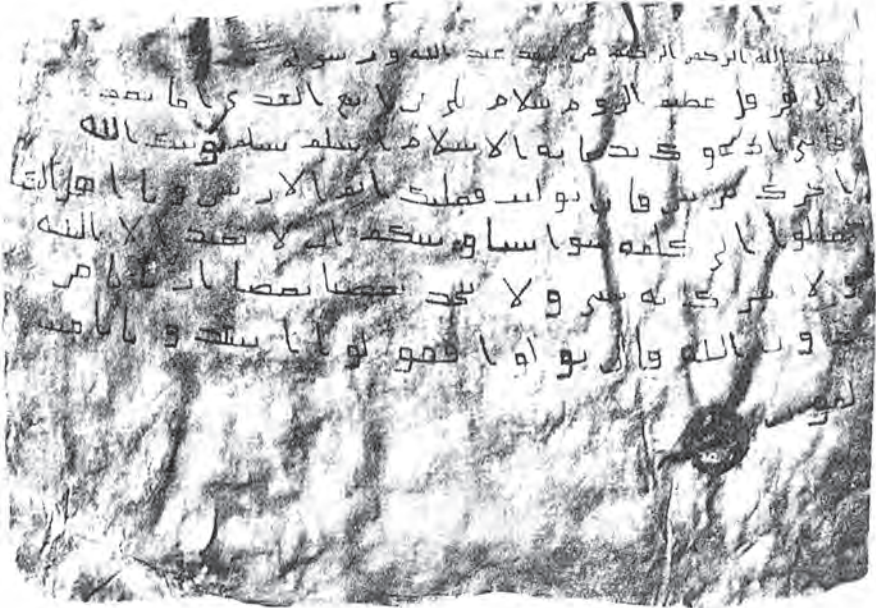 بسم الله الرحمن الرحيم من محمد عبد الله و رسوله
الى هرقل عظيم الروم سلام على من اتبع الهدى اما بعد
فانى ادعوك بدعاية الاسلام اسلم تسلم يوتك الله
اجرك مرتين فان توليت فعليك اثم الاريسين و يا اهل الكت
تعالوا الى كلمة سوا بيننا و بينكم ان لا نعبد الا الله
و لا نشرك به شى و لا يتخذ بعضنا بعضا اربابا من
دون الله فان تولوا فقولوا اشهدوا بانا مس
لمون